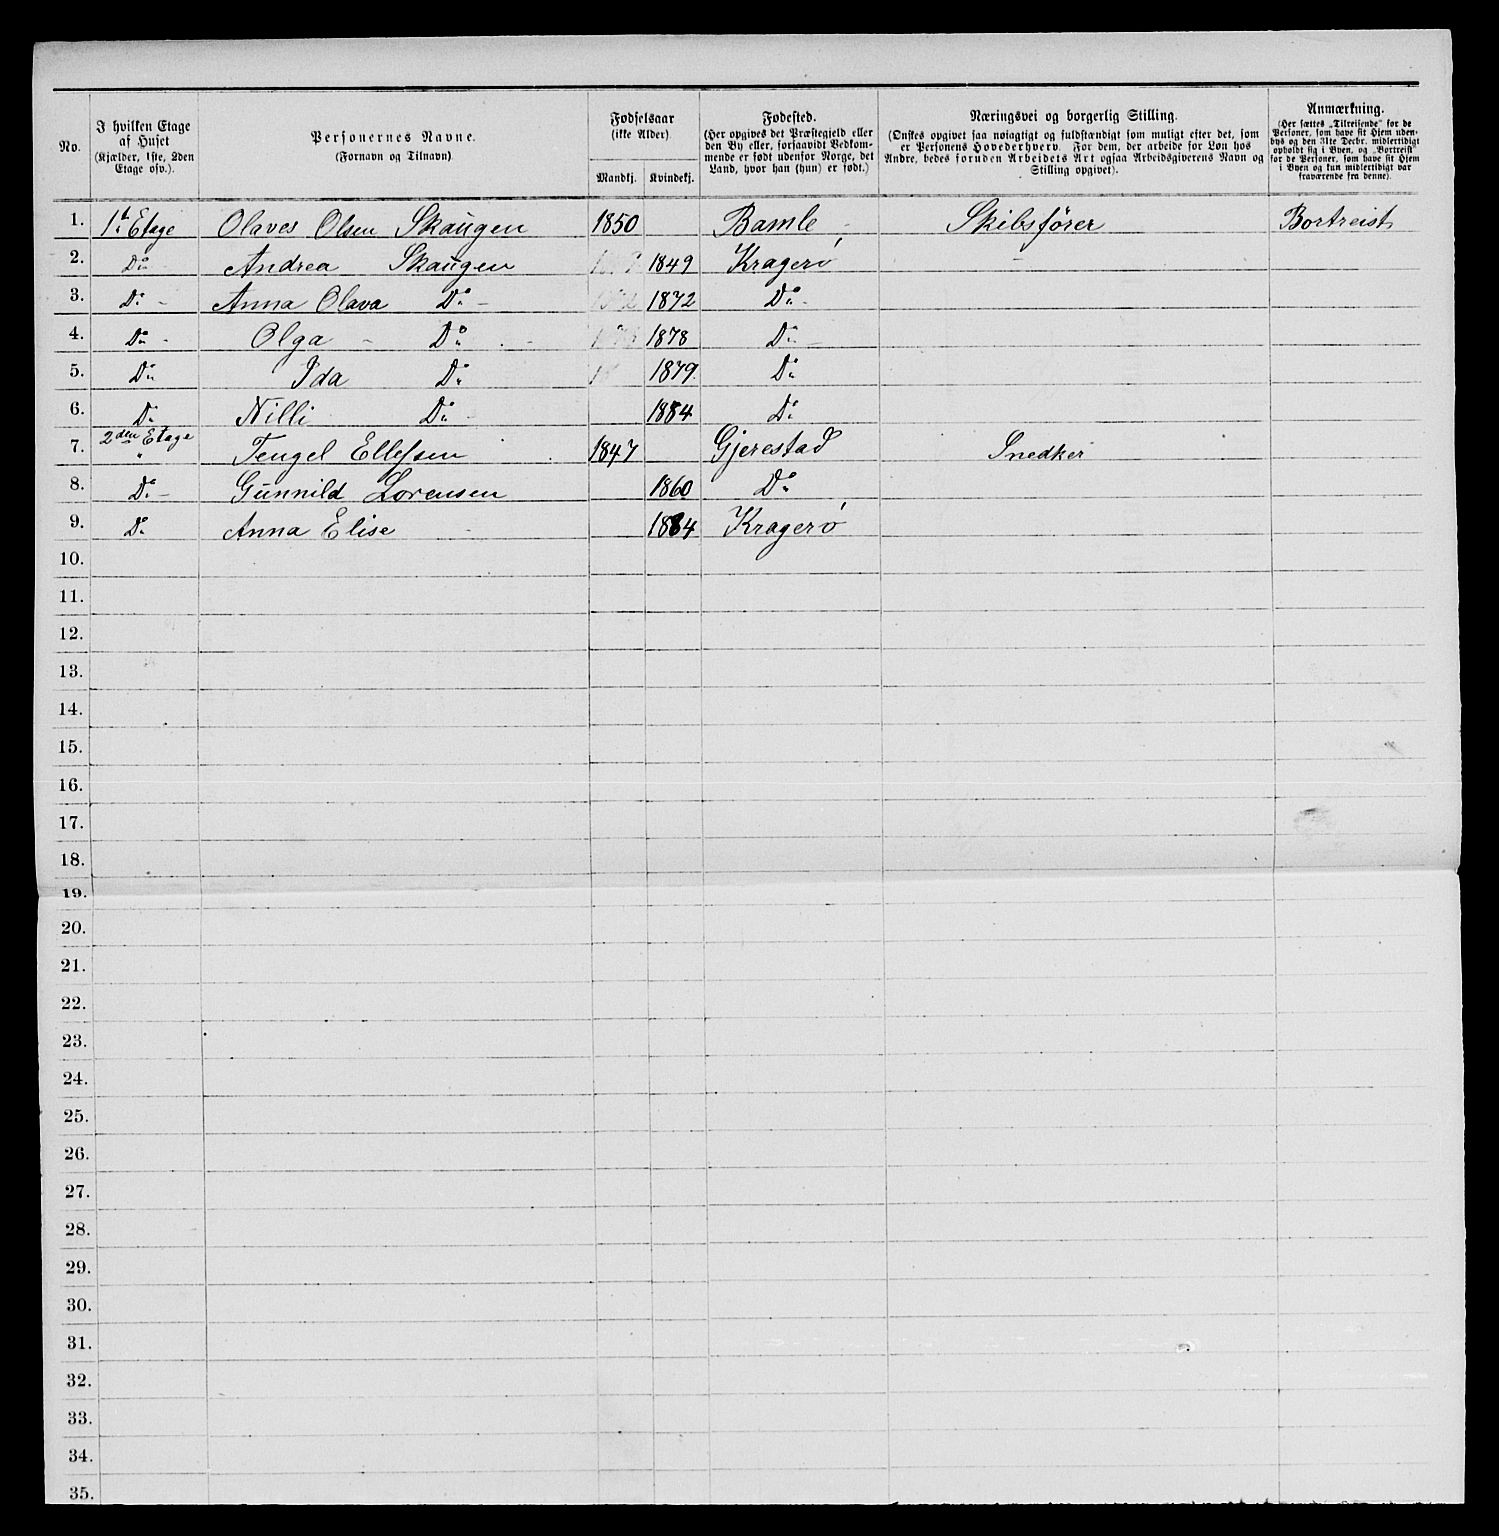 No.
I hvilken Etage
af Huset
(Kjælder, 1ste, 2den
Etage osv.).
Personernes Navne.
(Fornavn og Tilnavn)
Fødselsaar
(ikke Alder).
Mandkj. Kvindekj.
Fødested.
(Her opgives det Præstegjeld eller
den By eller, forsaavidt Vedkom-
mende er født udenfor Norge, det
Land, hvor han (hun) er født.)
Næringsvei og borgerlig Stilling.
(Ønskes opgivet saa nøiagtigt og fuldstændigt som muligt efter det, som
er Personens Hovederhverv. For dem, der arbeide for Løn hos
Andre, bedes foruden Arbeidets Art ogsaa Arbeidsgiverens Navn og
Stilling opgivet).
Anmærkning.
(Her sættes „Tilreisende" for de
Personer, som have sit Hjem uden-
bys og den 31te Decbr. midlertidigt
opholdt sig i Byen, og „Bortreist"
for de Personer, som have sit Hjem
i Byen og kun midlertidigt var
fraværende fra denne).
1. 1t Etage Olaves Olsen Skaugen 1850 Bamle Skibsfører Bortreist
2. Do Andrea Skaugen 1849 Kragerø
3. Do Anna Olava Do 1872 Do
4. Do Olga Do 1878 Do
5. Do Ida Do 1879 Do
6. Do Nilli Do 1884 Do
7. 2den Etage Tengel Ellefsen 1847 Gjerestad Snedker
8. Do Gunnild Lorensen 1860 Do
9. Do Anna Elise 1884 Kragerø
10.
11.
12.
13.
14.
15.
16.
17.
18.
19.
20.
21.
22.
23.
24.
25.
26.
27.
28.
29.
30.
31.
32.
33.
34.
35.